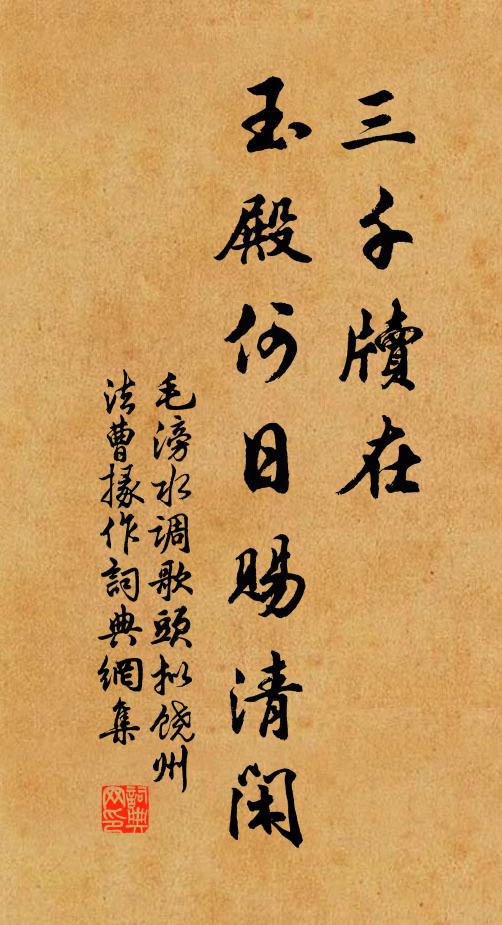 三千牘在
玉殿何日賜清閑
毛滂水調歌頭拟饒州
法曹掾作詞典網集
詞典網印